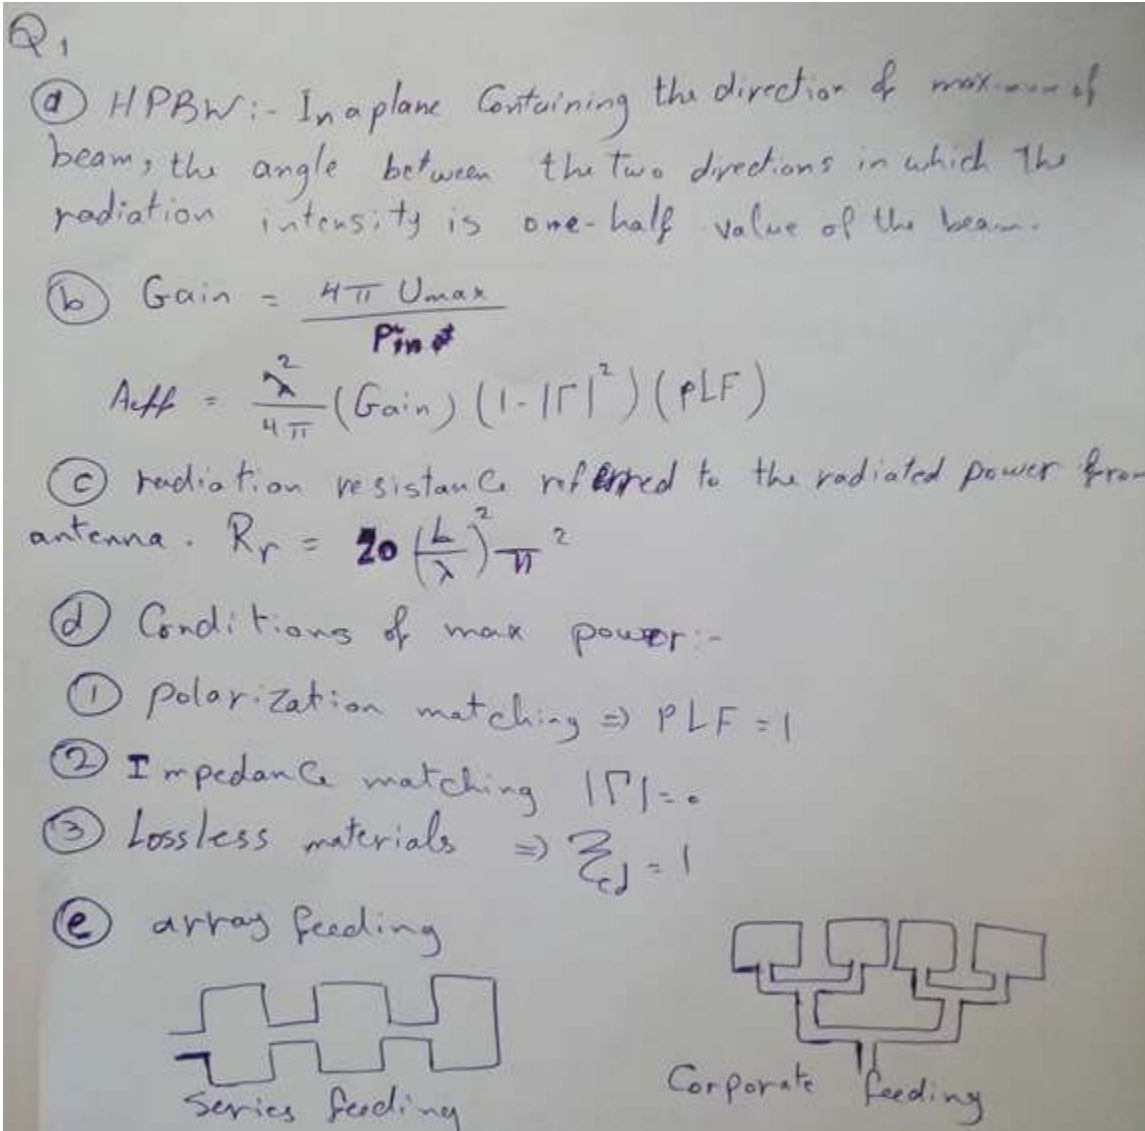 Q1
(a) HPBW:- In a plane Containing the direction of maximum of
beam, the angle between the two directions in which the
radiation intensity is one-half value of the beam.
(b) Gain = 4π Umax / Pin
Aeff = λ²/4π (Gain) (1-|Γ|²) (PLF)
(c) radiation resistance referred to the radiated power from
antenna. Rr = 20 (L/λ)² π²
(d) Conditions of max power:-
(1) polarization matching ⇒ PLF = 1
(2) Impedance matching |Γ| = 0
(3) Lossless materials ⇒ ξcd = 1
(e) array feeding
Series feeding
Corporate feeding